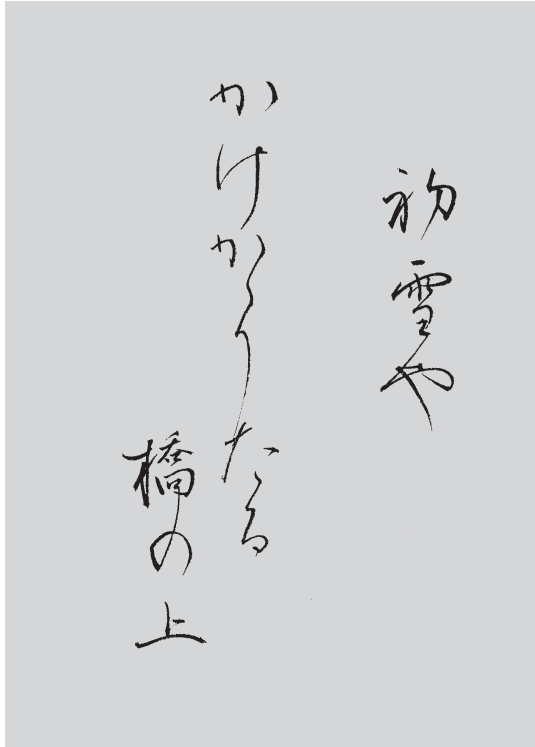 初雪や
かけかゝりたる
橋の上